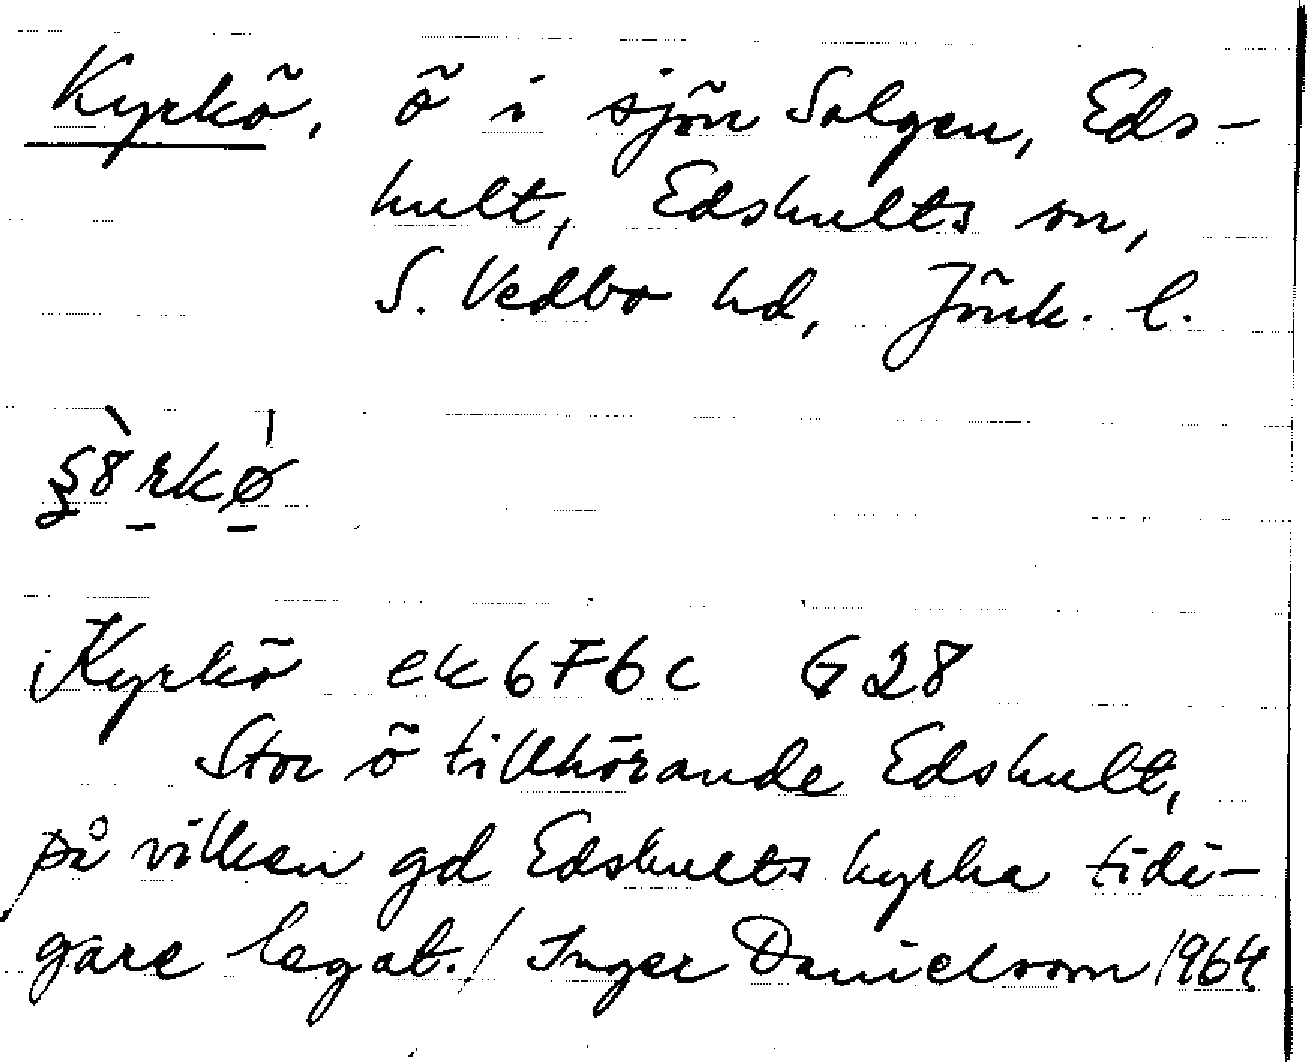 Kyrkö, ö i sjön Solgen, Eds-
hult, Edshults sn,
S. Vedbo hd, Jönk. l.
Kyrkö ek 6F6c G28
Stor ö tillhörande Edshult,
på vilken gd Edshults kyrka tidi-
gare legat./ Inger Danielsson 1964